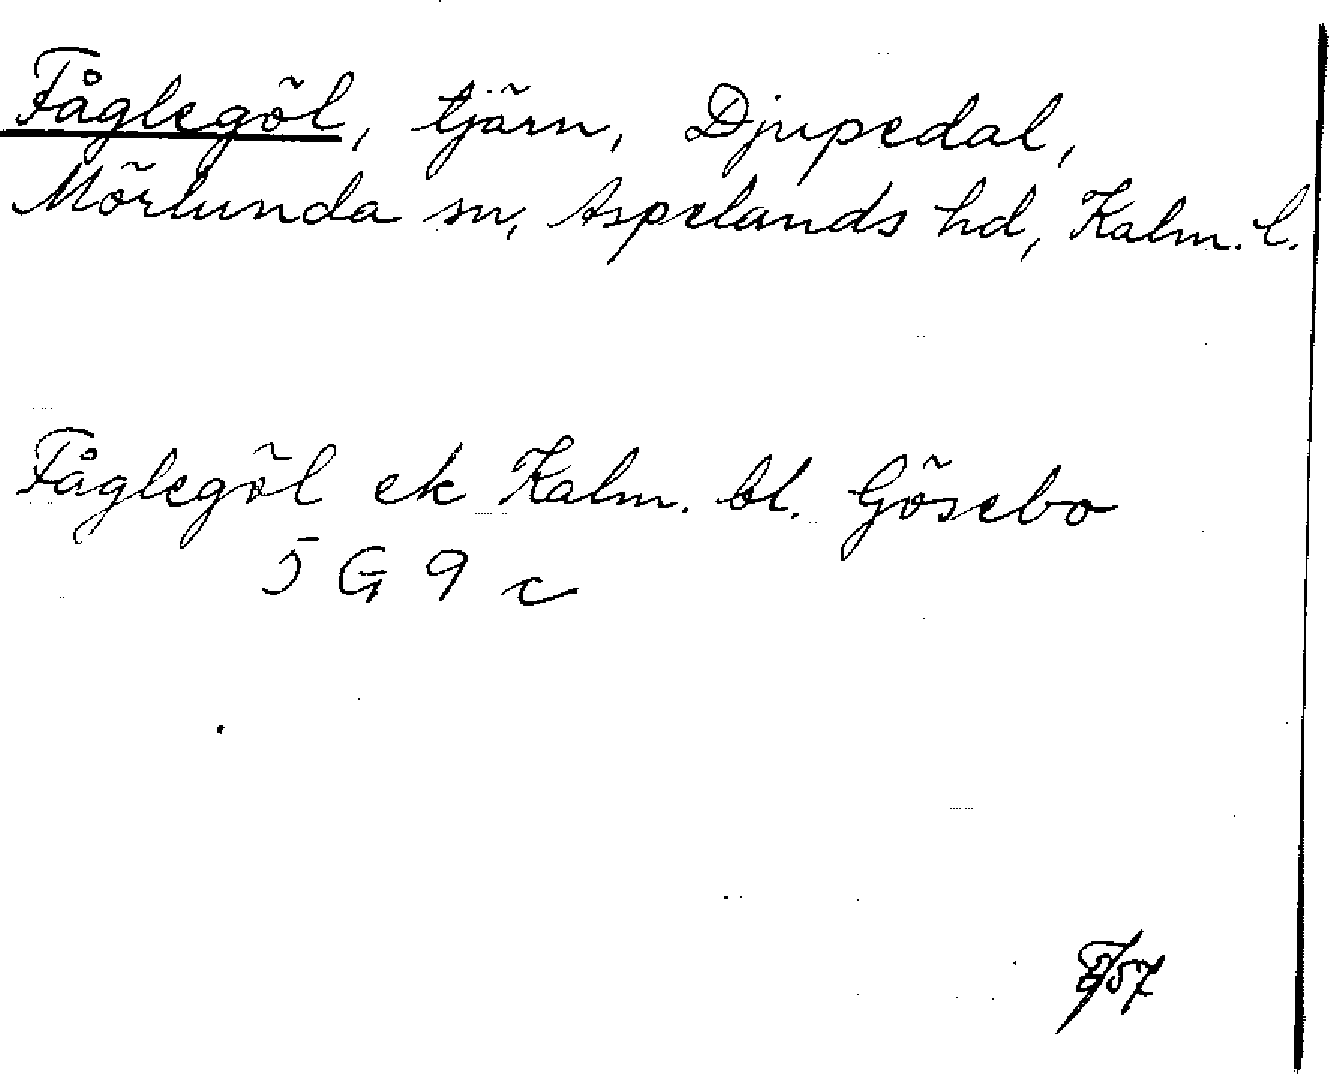 Fåglegöl, tjärn, Djupedal,
Mörlunda sn, Aspelands hd, Kalm. l.
Fåglegöl ek Kalm. bl. Gösebo
5 G 9 c